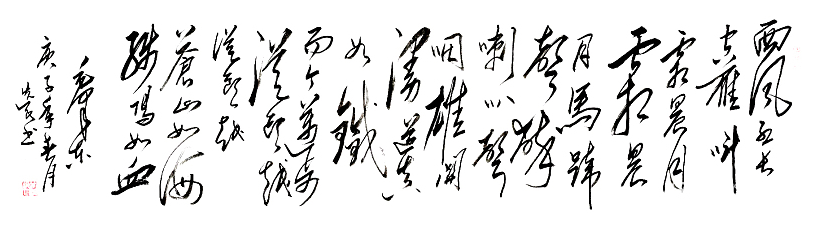 西风烈长
空雁叫
霜晨月
霜晨
月馬蹄
聲碎
喇叭聲
咽雄関
漫道真
如鐵
而今迈步
從头越
從头越
蒼山如海
残陽如血
毛泽东
庚子年春月
书